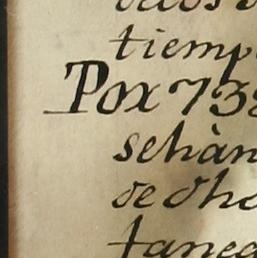 tiemp
Pox 738
sehàn
de dho
taneg